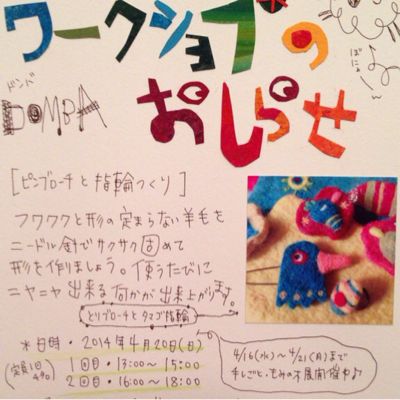 ワークショプの
おしらせ
ドンド
DOMBA
[ピンブローチと指輪つくり]
フワフワと形の定まらない羊毛を
ニードル針でサクサク固めて
形を作りましょう。使うたびに
ニヤニヤ出来る何かが出来上がります。
とりブローチとタマゴ指輪
*日時・2014年4月20日(日)
1回目・13:00〜15:00
2回目・16:00〜18:00
4/16(水)〜4/21(月)まで